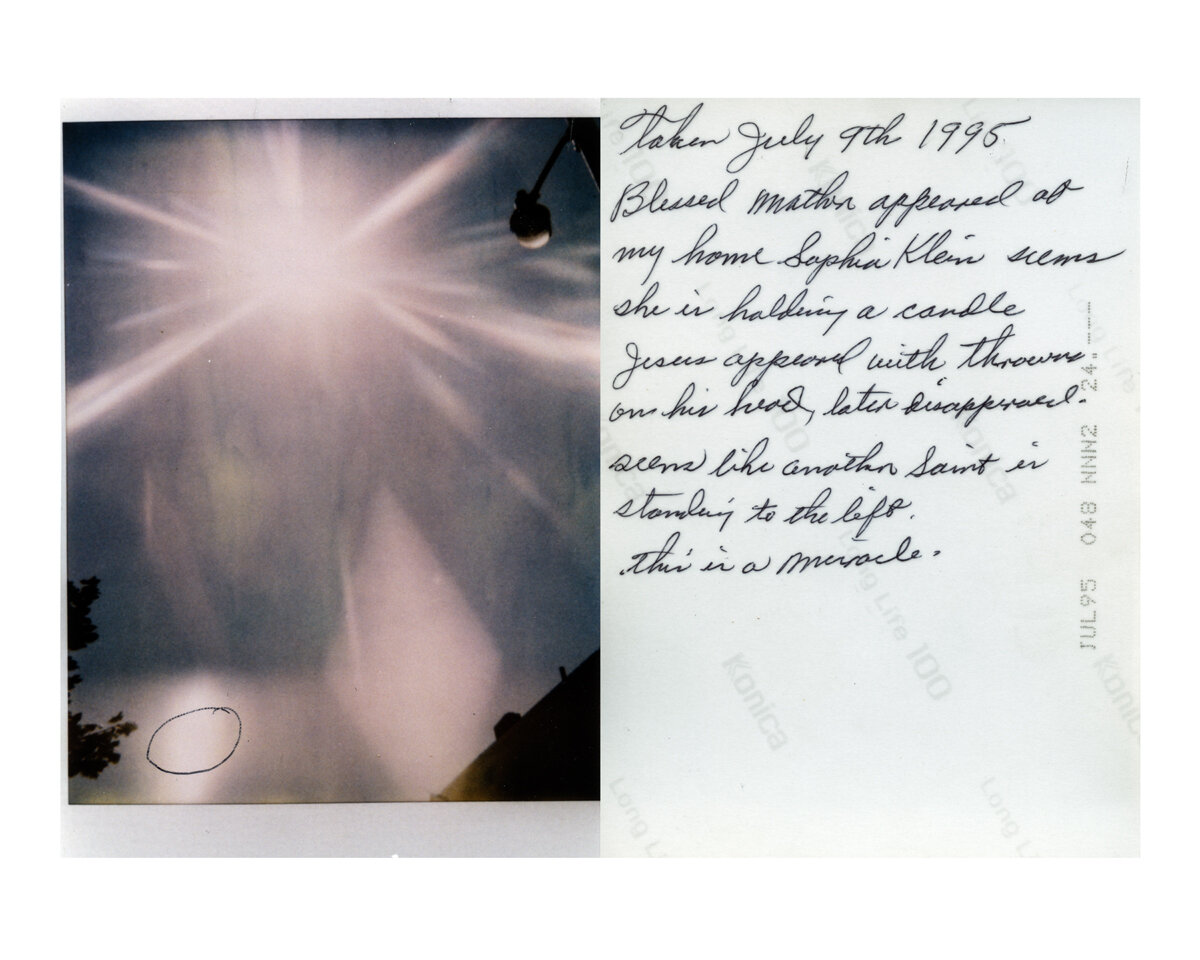 taken July 9th 1995
Blessed Mother appeared at
my home Sophia Klein seems
she is holding a candle
Jesus appeared with throwns
on his head, later disappeared.
seems like another Saint is
standing to the left.
.this is a miracle.
JUL95 048 NNN2 24.---
Konica
Long Life 100
Konica
Long Life 100
Konica
Long Life 100